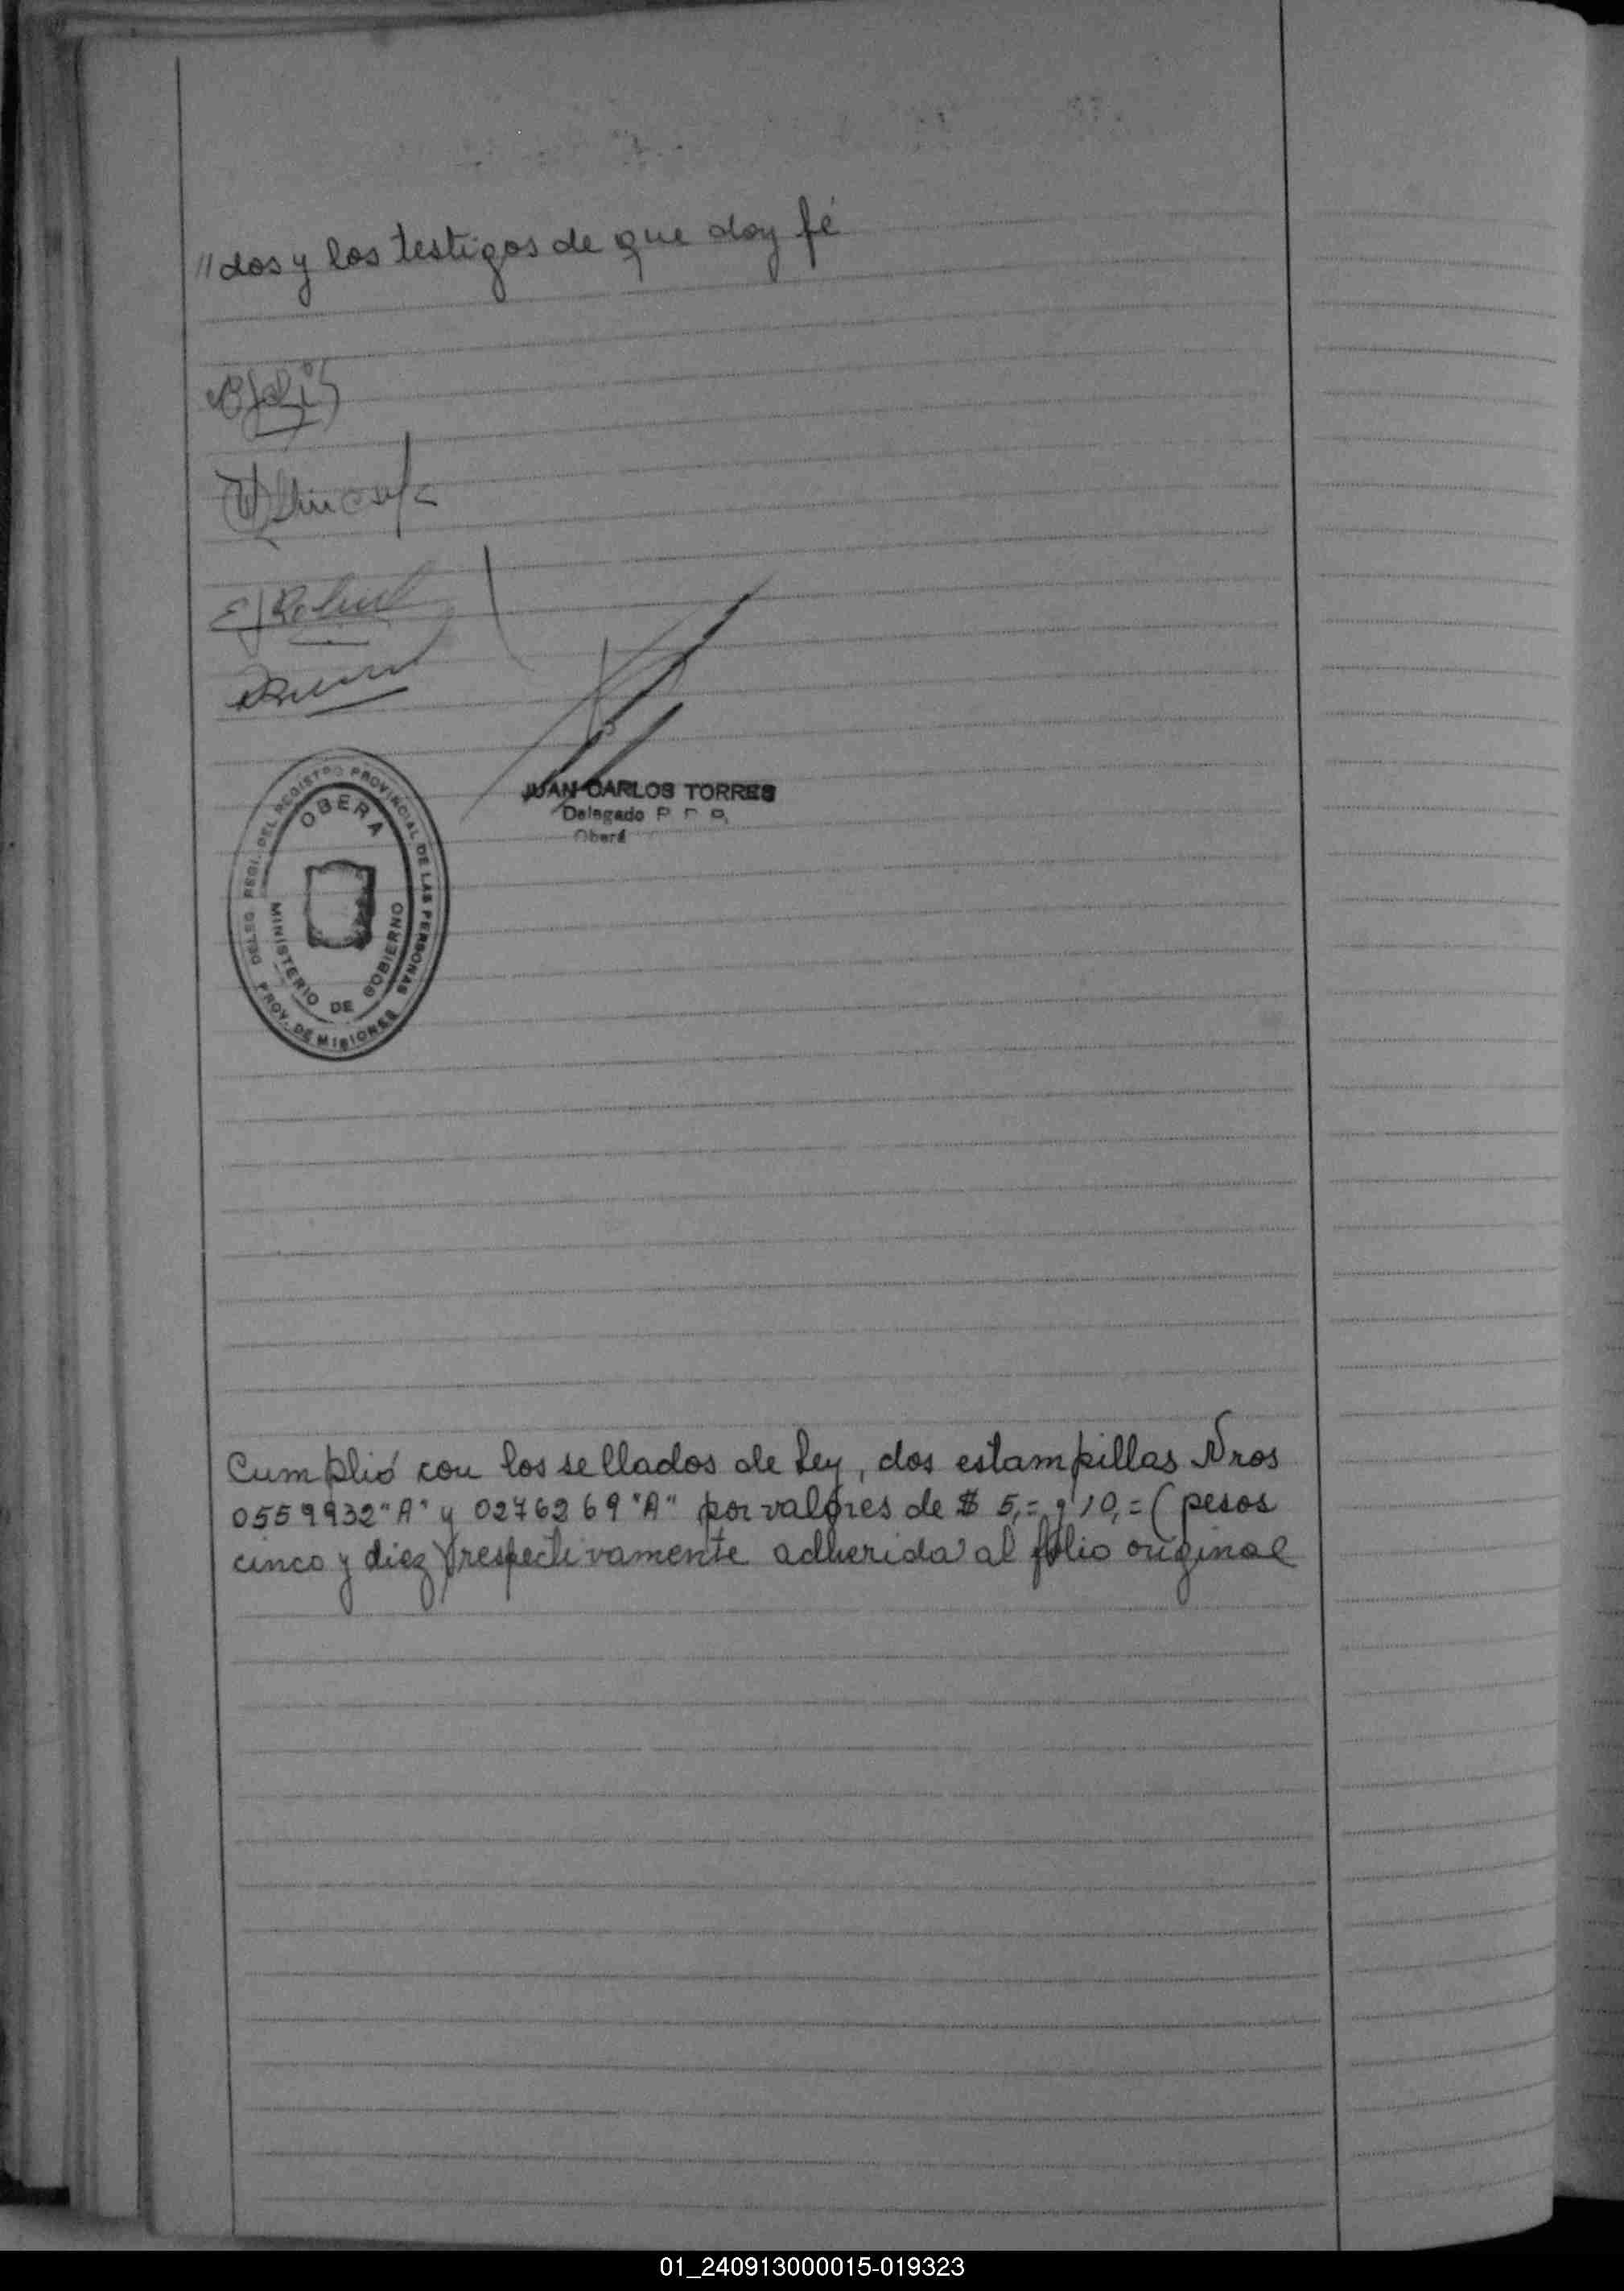 "dos y los testigos de que doy fé
JUAN CARLOS TORRES
Delegado R. P. P.
Oberá
DELEG. REGI. DEL REGISTRO PROVINCIAL DE LAS PERSONAS
PROV. DE MISIONES
OBERA
MINISTERIO DE GOBIERNO
Cumplió con los sellados de Ley, dos estampillas Nros
0559932 "A" y 0276269 "A" por valores de $ 5,= y 10,= (pesos
cinco y diez) respectivamente adherida al folio original
01_240913000015-019323